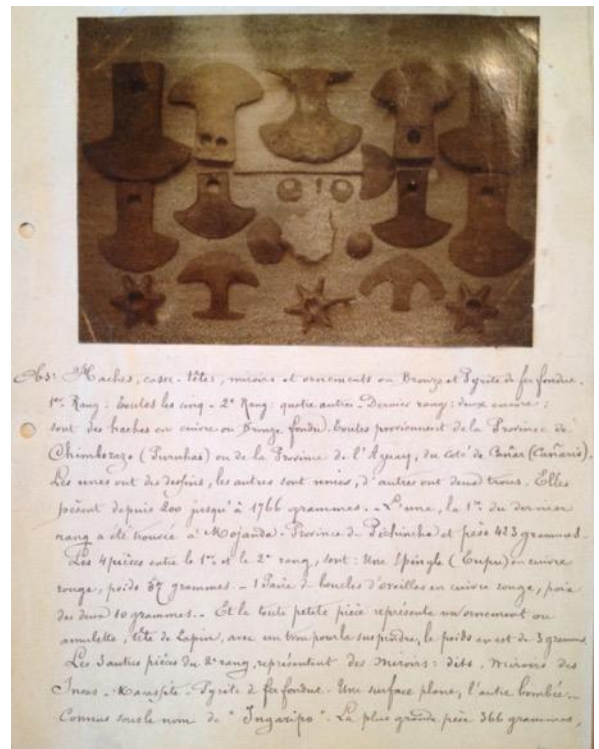 Haches, casse-têtes, miroirs et ornements en Bronze et Pyrite de fer fondue.
1er Rang: toutes les cinq - 2e Rang: quatre autres. Dernier rang: deux encore:
sont des haches en cuivre ou Bronze fondu. toutes proviennent de la Province de
Chimborazo (Puruhas) ou de la Province de l'Azuay, du coté de Cañar (Cañaris).
Les unes ont des dessins, les autres sont unies, d'autres ont deux trous. Elles
pèsent depuis 200 jusqu'à 1766 grammes. - L'une, la 1re du dernier
rang a été trouvée à Mojanda. Province de Pichincha et pèse 423 grammes.
Les 4 pièces entre le 1er et le 2e rang, sont: Une Epingle (Tupu) en cuivre
rouge, poids 37 grammes. - 1 Paire de boucles d'oreilles en cuivre rouge, poids
des deux 10 grammes. - Et la toute petite pièce représente un ornement ou
amulette, tête de Lapin, avec un trou pour la suspendre, le poids en est de 3 grammes
Les 3 autres pièces du 2e rang, représentent des miroirs: dits, miroirs des
Incas. - Pyrite de fer fondue. Une surface plane, l'autre bombée. -
Connus sous le nom de "Ingaripo". La plus grande pèse 366 grammes,